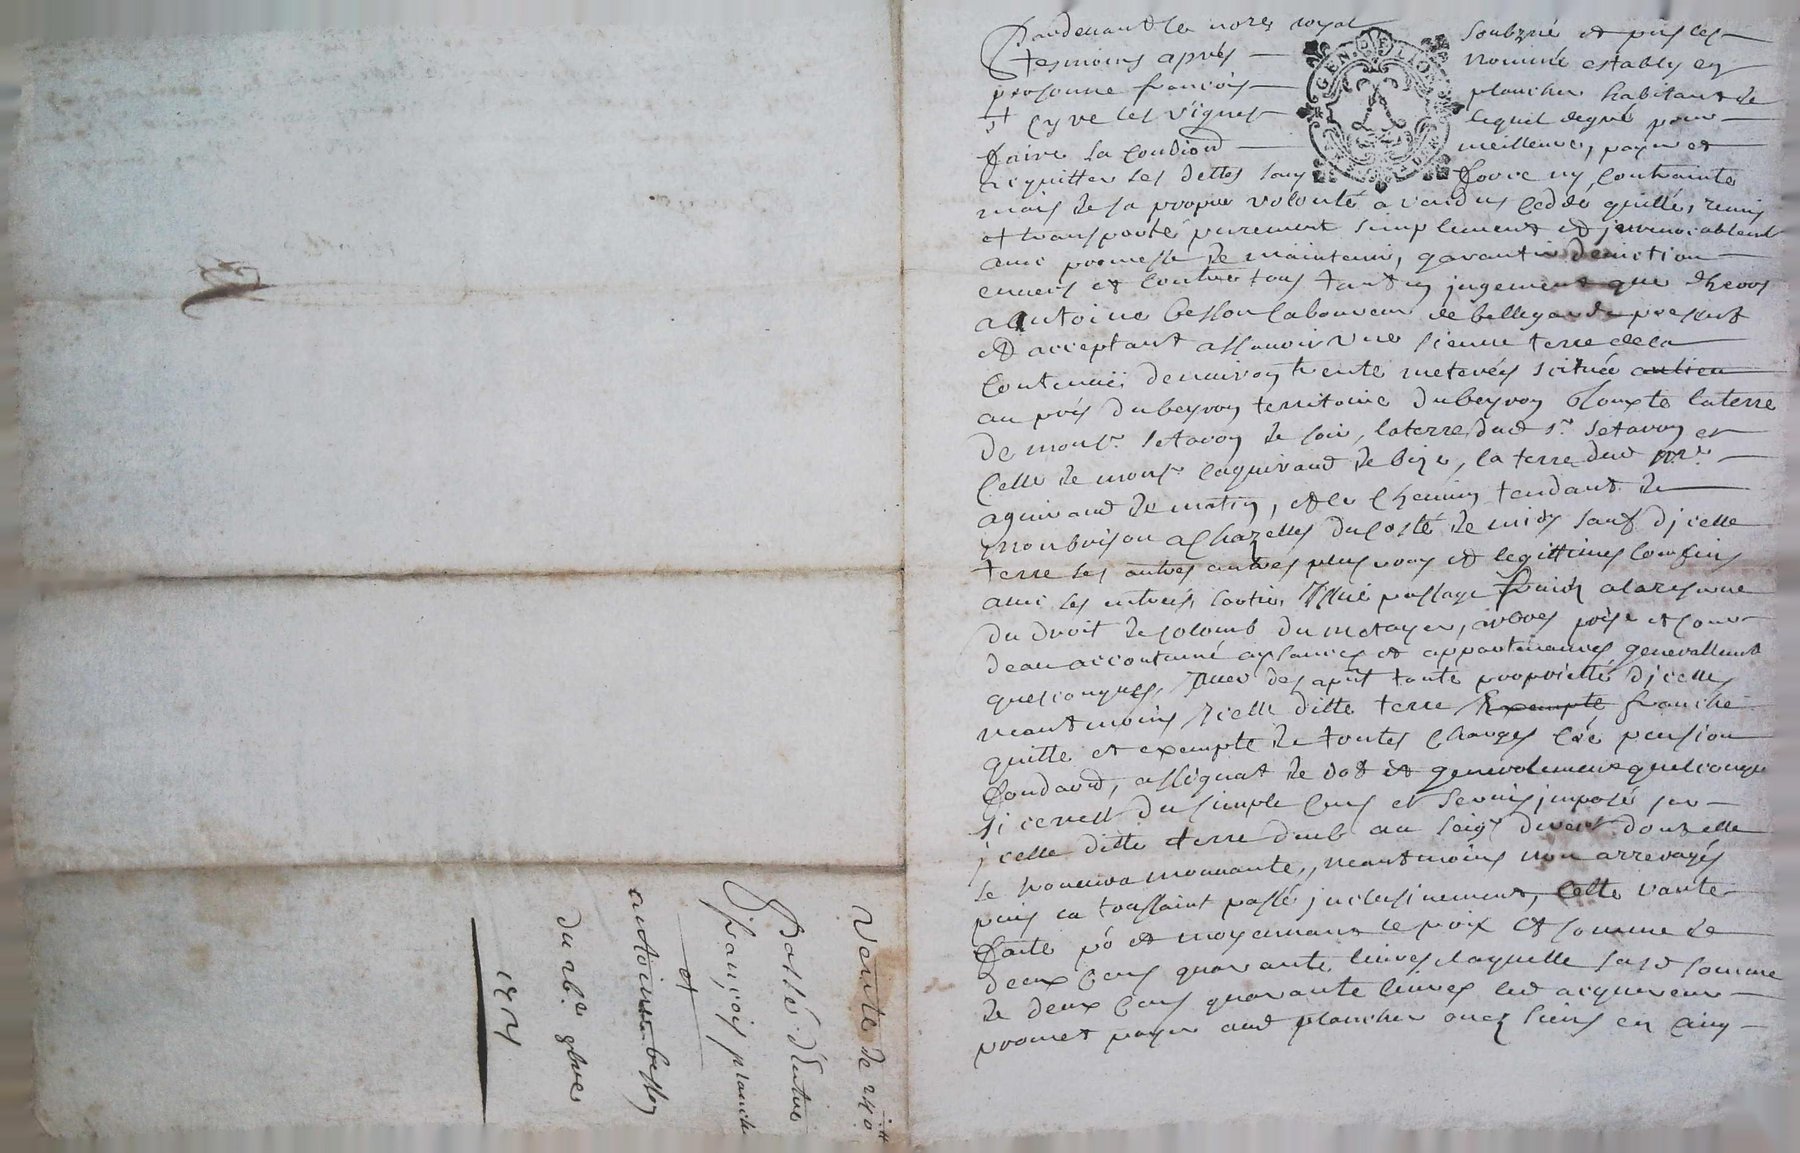 Pardevant le notre royal soubzné et pnt les
tesmoins après nommé estably en
personne françois plancher habitant de
st Cyre les Vignes lequel degré pour
faire sa condiond meilleure, payer et
acquitter ses dettes sans force ny contrainte
mais de sa propre volonté a vendus ceddé quitté, remis
et transporté purement simplement et jrrevocablemt
avec promesse de maintenir, garantir déviction
envers et contre tous tant en jugement que dhors
a antoine besson laboureur de bellegarde present
et acceptant assavoir une sienne terre de la
contenue denviron trente meterées scituée au lieu
au près du beyron territoire du beyron jouxte la terre
de monsr. setavon de soir, la terre dud sr. setavon et
celle de monsr. laguirand de bize, la terre dud mr.
aguirand de matin, et le chemin tendant de
monbrison a chazelles du costé de midy sauf djcelle
terre ses autres autres plus vrays et legittimes confins
avec ses entrées, sorties, passage
du droit de colomb du metayer, arbres
deau accoutumé aysances et appartenances generallemt
quesconques, toute proprietté djcelle
neantmoins jcelle ditte terre exempte franche
quitte et exempte de toutes charges pension
fondaond, assignat de dot et generalement quelconque
si ce nest du simple cens et servis jmposé sur
jcelle ditte terre deub au seigr direct dont elle
se trouvera mouvante, neantmoins non arreragés
puis la toussaint passé jnclusivement, cette vante
faite po et moyennant le prix et somme de
deux cens quarante livres laquelle susd somme
de deux cens quarante livres led acquereur
promet payer aud plancher ou ez siens en cinq
Vente de 240 tt
Passé dentre
françois planché
et
antoine besson
du 26e 9bre
17